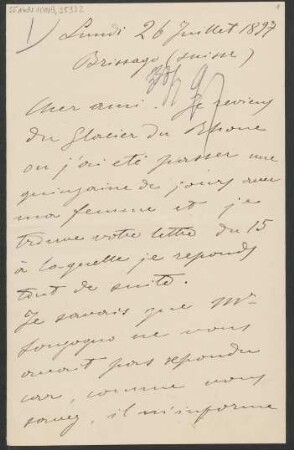 Lundi 26 Juillet 1897
Brissago (Suisse)
Cher ami. Je reviens
du Glacier du Rhone
ou j'ai été passer une
quinzaine de jours avec
ma femme et je
trouve votre lettre du 15
à laquelle je reponds
tout de suite.
Je savais que Mr
Sonzogno ne vous
avait pas repondu
car, comme vous
savez, il m'informe